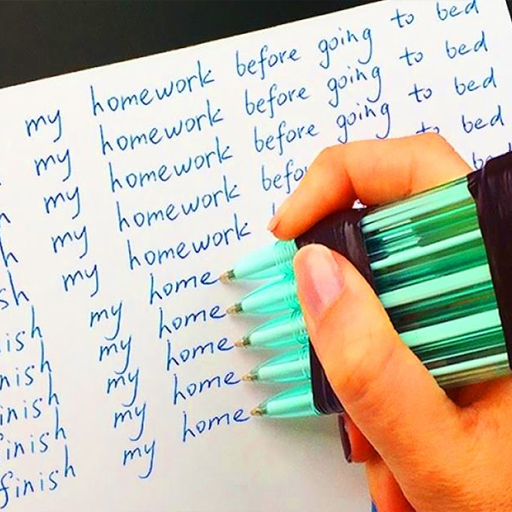 my homework before going to bed
my homework before going to bed
h my homework before going to bed
h my homework befo to bed
sh my homework be
ish my home
nish my home
inish my home
inish my home
finish my home